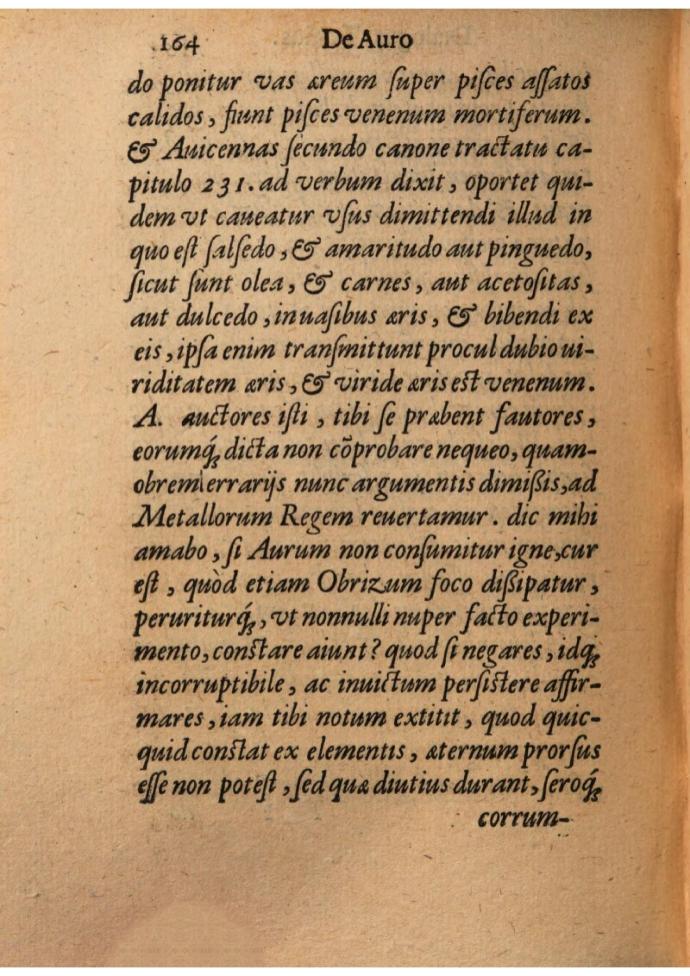 .164 De Auro
do ponitur vas æreum ſuper piſces aſſatos
calidos, fiunt piſces venenum mortiferum.
& Auicennas ſecundo canone tractatu ca-
pitulo 231. ad verbum dixit, oportet qui-
dem vt caueatur vſus dimittendi illud in
quo eſt ſalſedo, & amaritudo aut pinguedo,
ſicut ſunt olea, & carnes, aut acetoſitas,
aut dulcedo, in uaſibus æris, & bibendi ex
eis, ipſa enim tranſmittunt procul dubio ui-
riditatem æris, & viride æris eſt venenum.
A. auctores iſti, tibi ſe præbent fautores,
eorumq́ꝫ dicta non cõprobare nequeo, quam-
obrem errarijs nunc argumentis dimißis, ad
Metallorum Regem reuertamur. dic mihi
amabo, ſi Aurum non conſumitur igne, cur
eſt, quòd etiam Obrizum foco dißipatur,
perureturq́ꝫ, vt nonnulli nuper facto experi-
mento, conſtare aiunt? quod ſi negares, idq́ꝫ
incorruptibile, ac inuictum perſiſtere affir-
mares, iam tibi notum extitit, quod quic-
quid conſtat ex elementis, æternum prorſus
eſſe non poteſt, ſed quæ diutius durant, ſeroq́ꝫ
corrum-